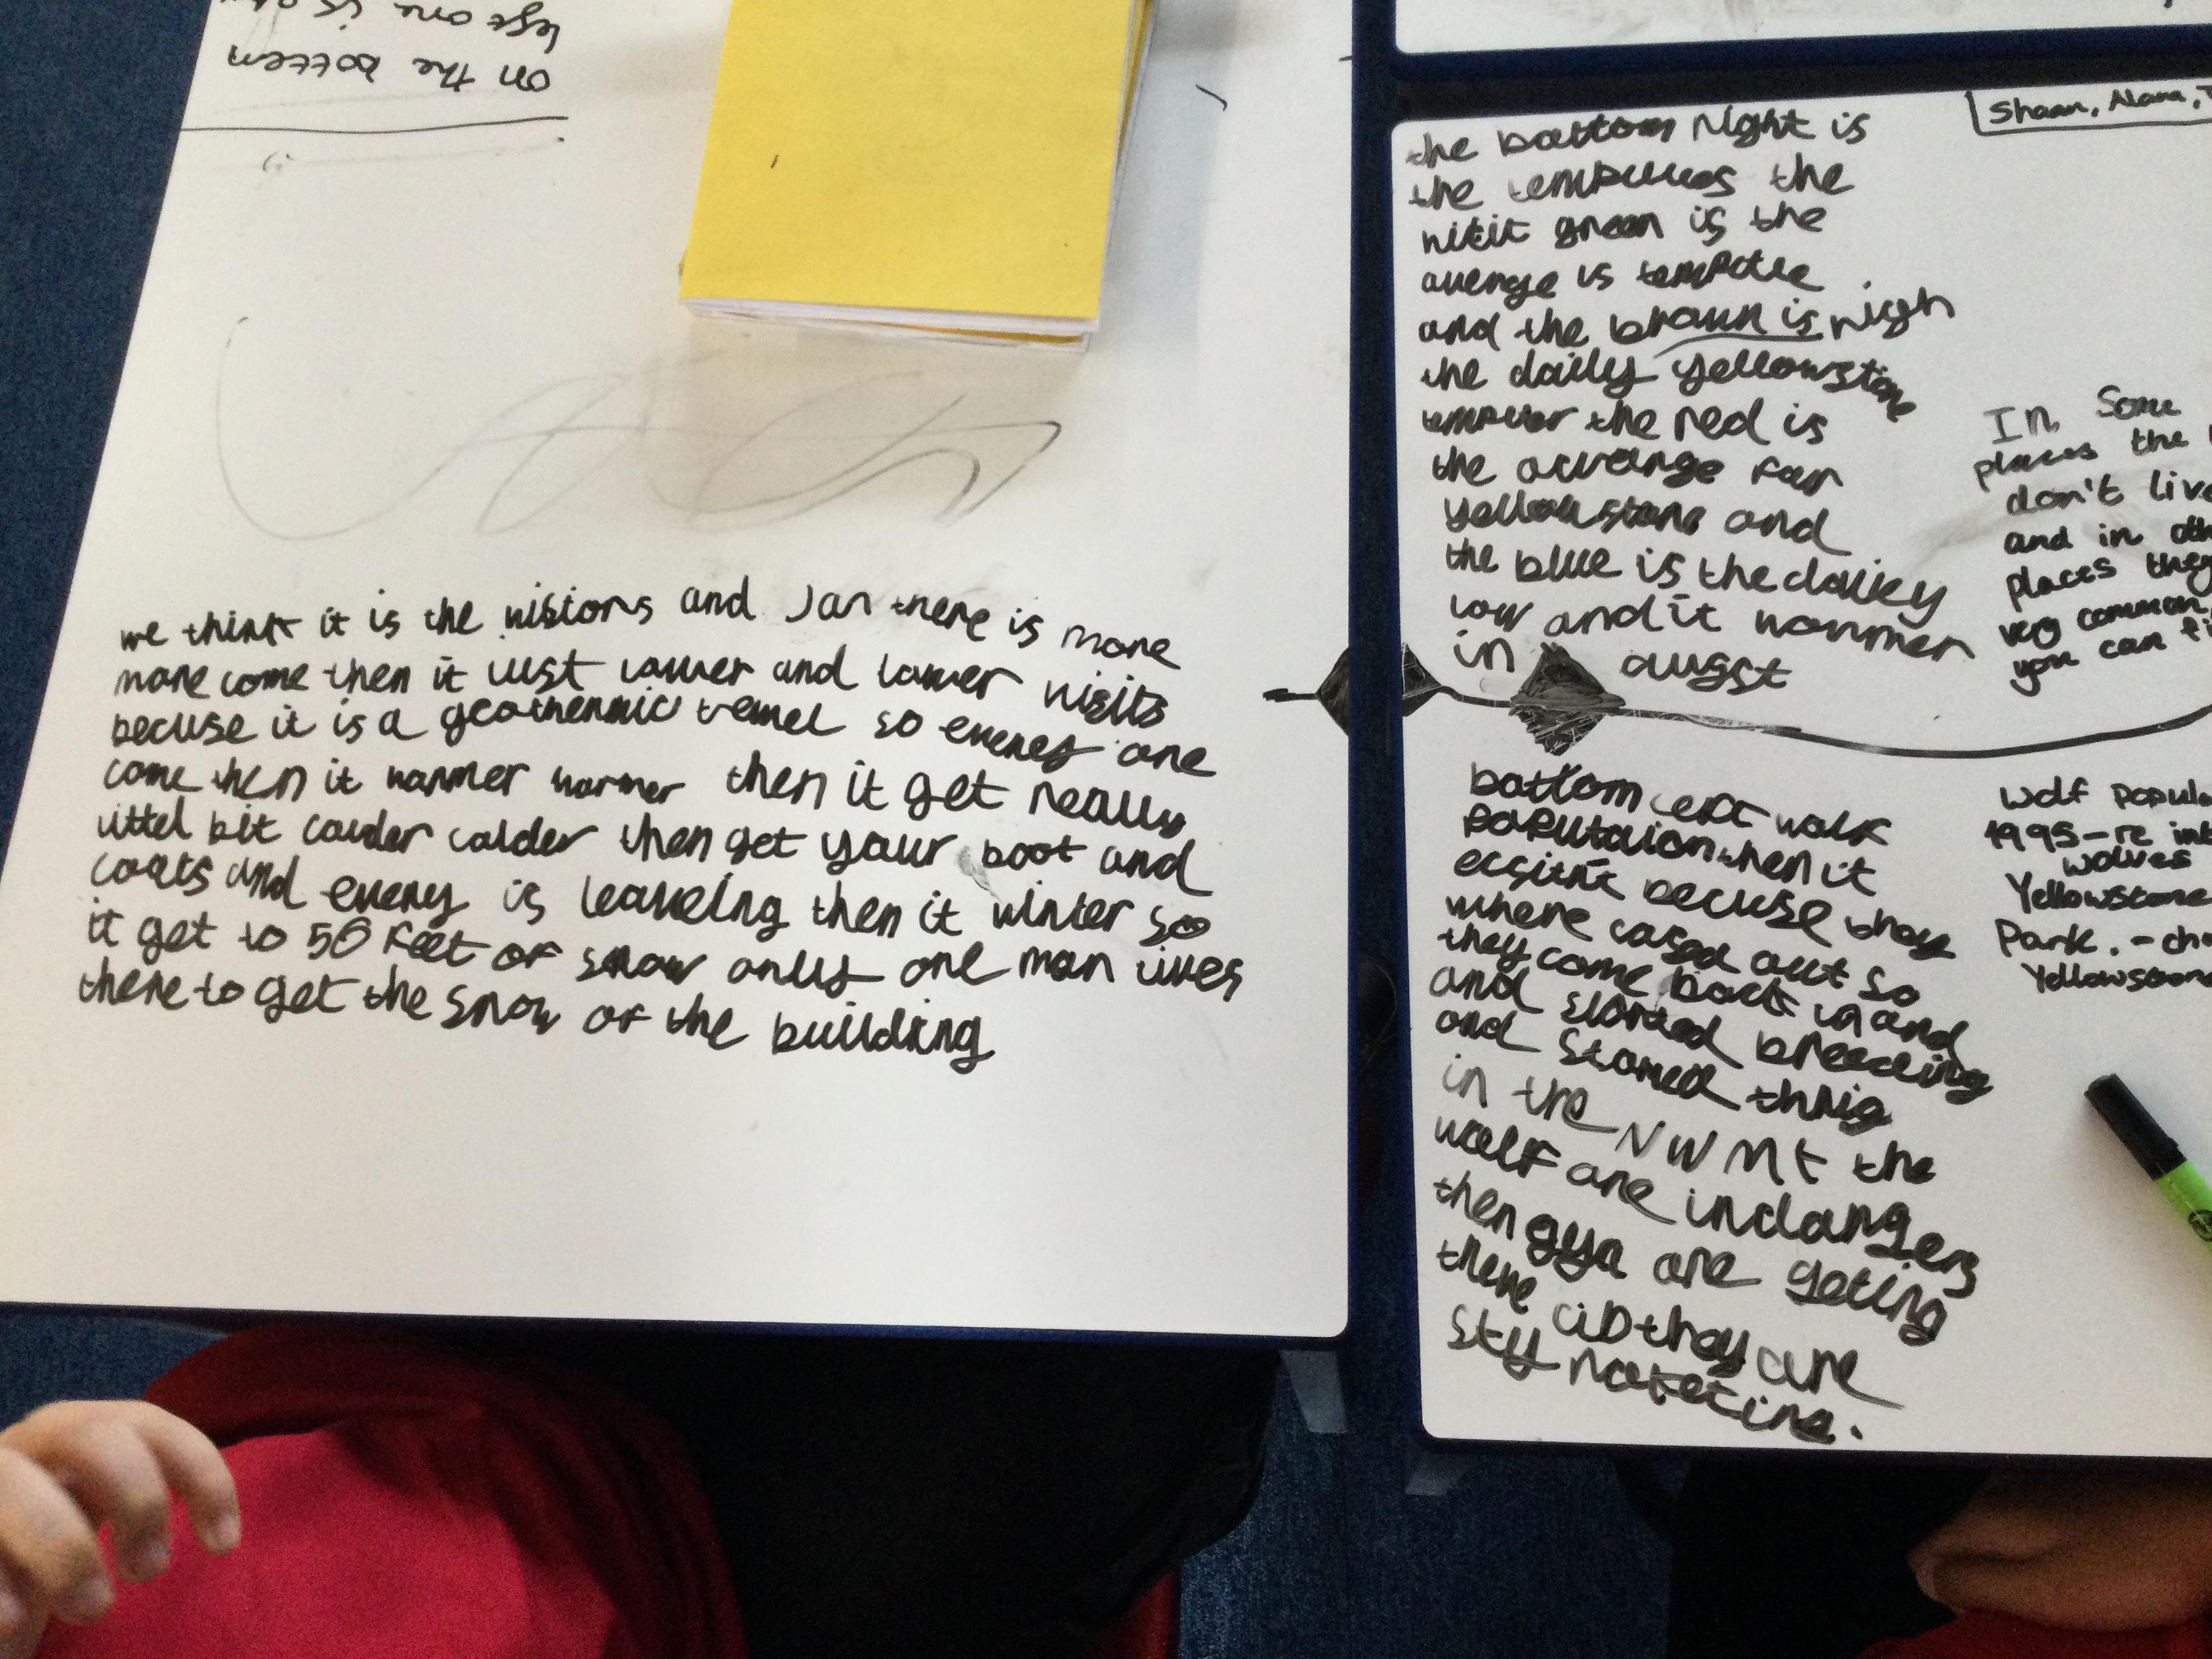 on the bottem
we think it is the visions and Jan there is more
more come then it just lawer and lawer visits
becuse it is a geothermic so everey one
come then it warmer warmer then it get really
littel bit caulder calder then get your boot and
coats and everey is leaveing then it winter so
it get to 50 feet of snow only one man lives
there to get the snow of the building
Shaan, Alana,
the bottom right is
the the
green is the
avenge is
and the braun is high
the daily yellowstone
the red is
the avarenge for
yellowstone and
the blue is the dailey
low and it warmmer
in augst
In Some
places the
don't live
and in
places they
very common
you can
bottom left wolf
when it
becuse thay
where cased out so
they come back in and
and started breeding
and started thrig
in the NWMt the
wolf are indangers
then gya are geting
there they are
Wolf
1995-re
wolves
Yellowstone
Park. -